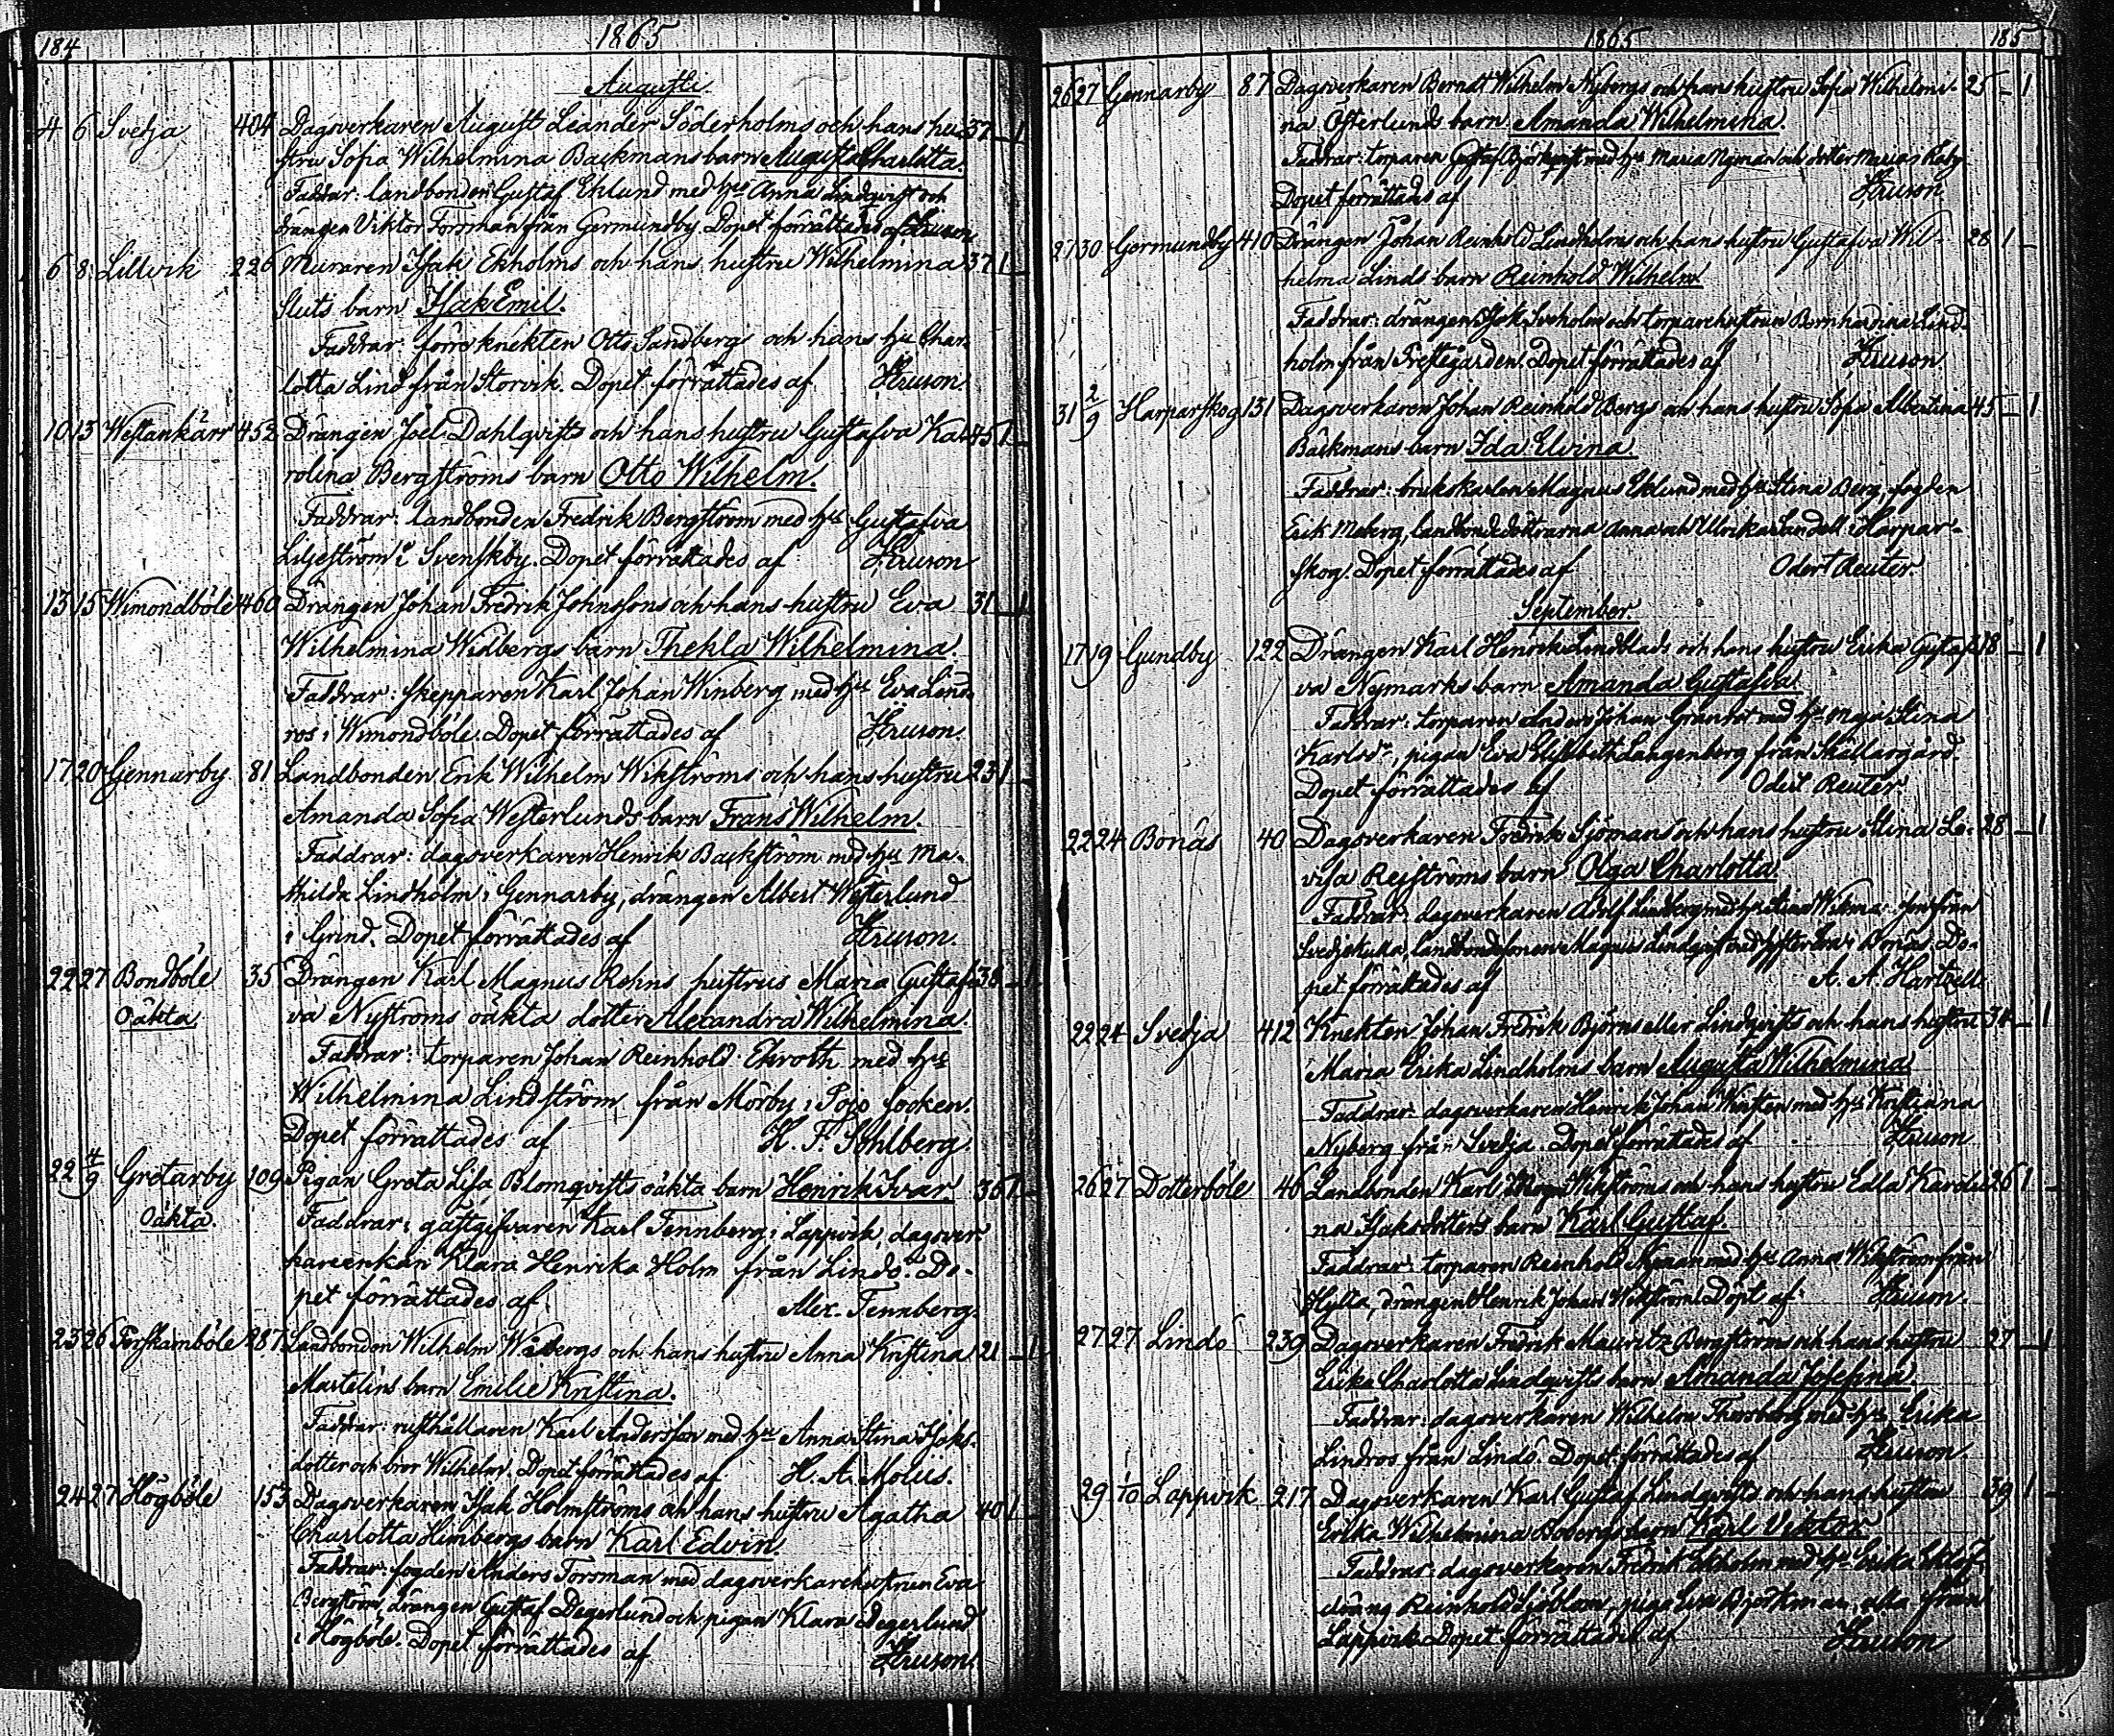 184 1865
Augusti
4 6 Svedja 404 Dagsverkaren August Leander Söderholms och hans hu- 37 1
stru Sofia Wilhelmina Backmans barn Augusta Charlotta.
Faddrar: landbonden Gustaf Eklund med hu Anna Lindqvist och
drängen Viktor Forsman från Germundby. Dopet förrättades af
6 8 Lillvik 226 Muraren Isak Ekholms och hans hustru Wilhelmina 37 1
Sluts barn Isak Emil.
Faddrar: förre knekten Otto Sandberg och hans hu Char-
lotta Lind från Storvik. Dopet förrättades af
10 13 Westankärr 452 Drängen Joel Dahlqvists och hans hustru Gustafva Ka- 45 1
rolina Bergströms barn Otto Wilhelm.
Faddrar: landbonden Fredrik Bergström med hu Gustafva
Liljeström i Svenskby. Dopet förrättades af
13 15 Wimondböle 460 Drängen Johan Fredrik Johnssons och hans hustru Eva 31 1
Wilhelmina Widbergs barn Thekla Wilhelmina.
Faddrar: skepparen Karl Johan Winberg med hu Eva Lind-
ros i Wimondböle. Dopet förrättades af
17 20 Gennarby 81 Landbonden Erik Wilhelm Wikströms och hans hustru 23 1
Amanda Sofia Westerlunds barn Frans Wilhelm.
Faddrar: dagsverkaren Henrik Backström med hu Ma-
thilda Lindholm i Gennarby, drängen Albert Westerlund
i Grind. Dopet förrättades af
22 27 Bondböle 35 Drängen Karl Magnus Rehns hustrus Maria Gustaf- 38 1
Oäkta va Nyströms oäkta dotter Alexandra Wilhelmina.
Faddrar: torparen Johan Reinhold Ekroth med hu
Wilhelmina Lindström från Mörby i Pojo socken.
Dopet förrättades af H. F. Sohlberg.
22 4/9 Gretarby 109 Pigan Greta Lisa Blomqvists oäkta barn Henrik Ivar 36 1
Oäkta. Faddrar: gästgifvaren Karl Tennberg i Lappvik, dagsver-
kareenkan Klara Henrika Holm från Lindö. Do-
pet förrättades af Alex. Tennberg.
23 26 Torskamböle 287 Landbonden Wilhelm Widbergs och hans hustru Anna Kristina 21 1
Martelins barn Emilie Kristina.
Faddrar: rusthållaren Karl Andersson med hu Anna Stina Isaks-
dotter och bror Wilhelm. Dopet förrättades af H. A. Moliis.
24 27 Högböle 153 Dagsverkaren Isak Holmströms och hans hustru Agatha 40 1
Charlotta Himbergs barn Karl Edvin.
Faddrar: fogden Anders Forsman med dagsverkarehustrun Eva
Bergström, drängen Gustaf Degerlund och pigan Klara Degerlund
i Högböle. Dopet förrättades af
1865 185
26 27 Gennarby 87 Dagsverkaren Berndt Wilhelm Nybergs och hans hustru Sofia Wilhelmi- 25 1
na Österlunds barn Amanda Wilhelmina.
Faddrar: torparen Gustaf Björkqvist med hu Maria Nyman och dotter Maria
Dopet förrättades af
27 30 Germundby 410 Drängen Johan Reinhold Lindholms och hans hustru Gustafva Wil- 28 1
helma Linds barn Reinhold Wilhelm
Faddrar: drängen Isak och torparehustrun Bernhardina Lind-
holm från Prestegården. Dopet förrättades af
31 2/9 Harparskog 131 Dagsverkaren Johan Reinhold Bergs och hans hustru Sofia Albertina 45 1
Backmans barn Ida Elvina
Faddrar: brukskarlen Magnus Eklund med hu Stina Berg, fogden
Erik Moberg, landbondedöttrarna Anna och Ulrika Sandell i Harpar-
skog. Dopet förrättades af Odert Reuter.
September
17 19 Gundby 122 Drängen Karl Henrik Lindblads och hans hustru Erika Gustaf- 18 1
va Nymarks barn Amanda Gustafva
Faddrar: torparen Anders Johan Granrot med hu Maja Stina
Karlsdr, pigan Eva Elisabeth Langenberg från Skällargård.
Dopet förrättades af Odert Reuter
22 24 Bonäs 40 Dagsverkaren Fredrik Sjömans och hans hustru Stina Lo- 28 1
visa Rejströms barn Olga Charlotta
Faddrar: dagsverkaren Adolf Lindberg med hu Stina från
landbondesonen Magnus Lindqvist med syster Eva i Bonäs. Do-
pet förrättades af A. A. Hartzell
22 24 Svedja 412 Knekten Johan Fredrik Björns eller Lindqvists och hans hustru 34 1
Maria Erika Lindholms barn Augusta Wilhelmina
Faddrar: dagsverkaren Henrik Johan med hu Kristiana
Nyberg från Svedja. Dopet förrättades af
26 27 Dotterböle 46 Landbonden Karl Wikströms och hans hustru Edla Karoli- 26 1
na Isaksdotters barn Karl Gustaf.
Faddrar: torparen Reinhold Nyman med hu Anna Wikström från
Hylta, drängen Henrik Johan Wikström. Döpt af
27 27 Lindö 239 Dagsverkaren Fredrik Mauritz Bergströms och hans hustru 27 1
Erika Charlotta Lindqvists barn Amanda Josefina
Faddrar: dagsverkaren Wilhelm Thorsberg med hu Erika
Lindros från Lindö. Dopet förrättades af
29 1/10 Lappvik 217 Dagsverkaren Karl Gustaf Lindqvists och hans hustru 39 1
Erika Wilhelmina Bobergs barn Karl Viktor
Faddrar: dagsverkaren Fredrik Ekholm med hu Erika Eklöf,
dräng Reinhold Sjöblom, piga Eva Björkman, alla från
Lappvik. Dopet förrättades af